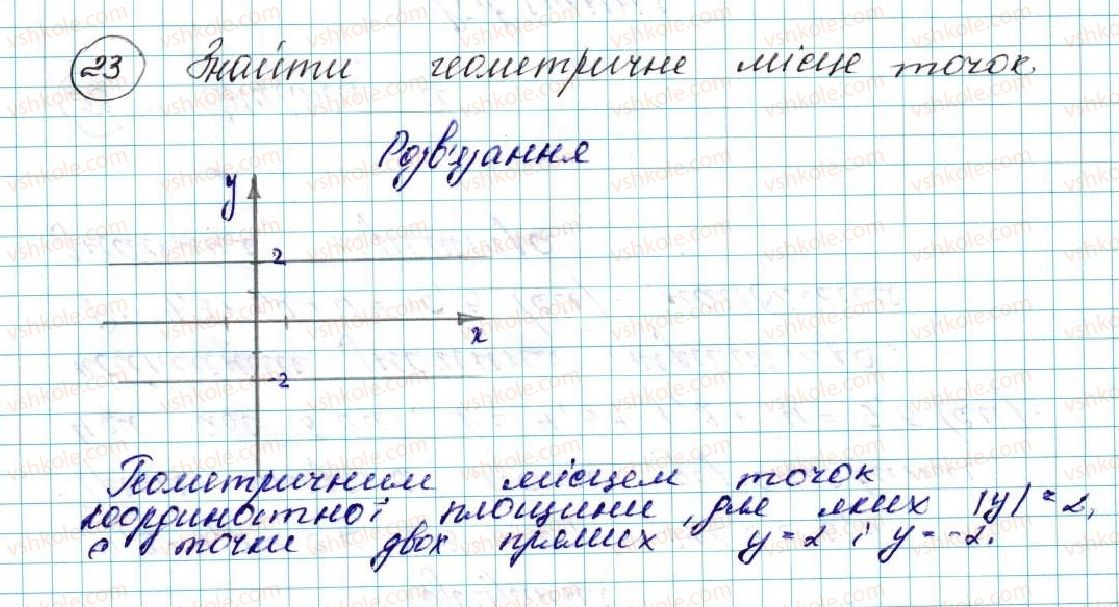 23 Знайти геометричне місце точок.
Розв'язання
y
2
x
-2
Геометричним місцем точок
координатної площини, для яких |y| = 2,
є точки двох прямих y = 2 і y = -2.